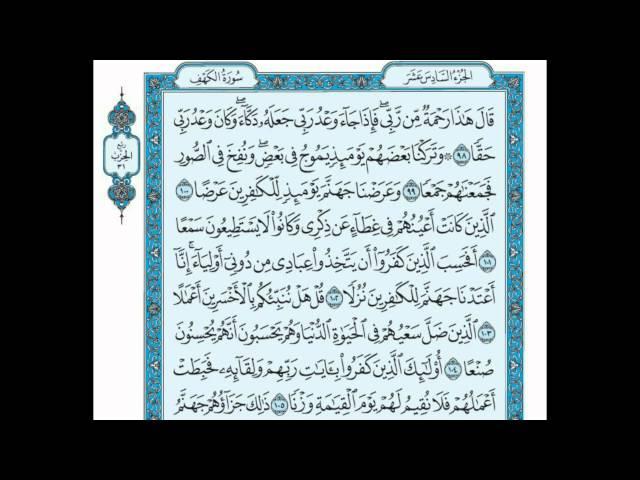 الجزء السادس عشر
سورة الكهف
قَالَ هَٰذَا رَحْمَةٌ مِّن رَّبِّى فَإِذَا جَآءَ وَعْدُ رَبِّى جَعَلَهُۥ دَكَّآءَ وَكَانَ وَعْدُ رَبِّى
حَقًّا ٩٨ ۞ وَتَرَكْنَا بَعْضَهُمْ يَوْمَئِذٍ يَمُوجُ فِى بَعْضٍ وَنُفِخَ فِى ٱلصُّورِ
فَجَمَعْنَٰهُمْ جَمْعًا ٩٩ وَعَرَضْنَا جَهَنَّمَ يَوْمَئِذٍ لِّلْكَٰفِرِينَ عَرْضًا ١٠٠
ٱلَّذِينَ كَانَتْ أَعْيُنُهُمْ فِى غِطَآءٍ عَن ذِكْرِى وَكَانُوا۟ لَا يَسْتَطِيعُونَ سَمْعًا
١٠١ أَفَحَسِبَ ٱلَّذِينَ كَفَرُوٓا۟ أَن يَتَّخِذُوا۟ عِبَادِى مِن دُونِىٓ أَوْلِيَآءَ إِنَّآ
أَعْتَدْنَا جَهَنَّمَ لِلْكَٰفِرِينَ نُزُلًا ١٠٢ قُلْ هَلْ نُنَبِّئُكُم بِٱلْأَخْسَرِينَ أَعْمَٰلًا
١٠٣ ٱلَّذِينَ ضَلَّ سَعْيُهُمْ فِى ٱلْحَيَوٰةِ ٱلدُّنْيَا وَهُمْ يَحْسَبُونَ أَنَّهُمْ يُحْسِنُونَ
صُنْعًا ١٠٤ أُو۟لَٰٓئِكَ ٱلَّذِينَ كَفَرُوا۟ بِـَٔايَٰتِ رَبِّهِمْ وَلِقَآئِهِۦ فَحَبِطَتْ
أَعْمَٰلُهُمْ فَلَا نُقِيمُ لَهُمْ يَوْمَ ٱلْقِيَٰمَةِ وَزْنًا ١٠٥ ذَٰلِكَ جَزَآؤُهُمْ جَهَنَّمُ
ربع
الحزب
٣١